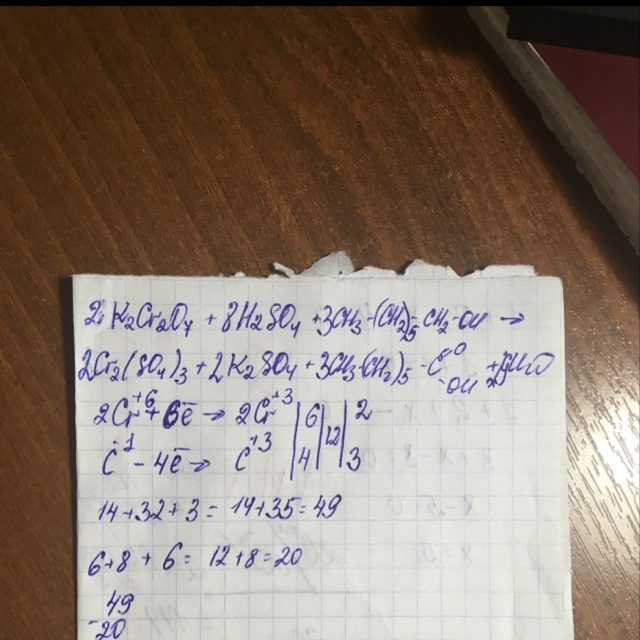 2K₂Cr₂O₇ + 8H₂SO₄ + 3CH₃-(CH₂)₅-CH₂-OH →
2Cr₂(SO₄)₃ + 2K₂SO₄ + 3CH₃-(CH₂)₅-C=O -OH + H₂O
2Cr⁺⁶ + 6ē → 2Cr⁺³ | 6 | 12 | 2
C⁻¹ - 4ē → C⁺³ | 4 | | 3
14+32+3 = 14+35=49
6+8+6= 12+8=20
49
-20